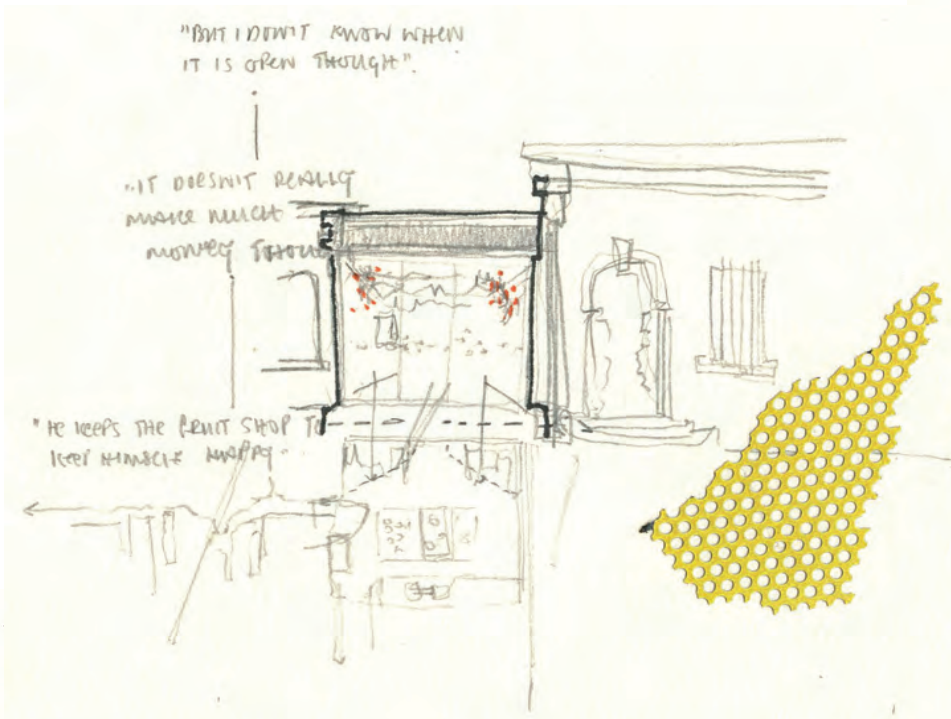 "BUT I DON'T KNOW WHEN
IT IS OPEN THOUGH".
"IT DOESN'T REALLY
MAKE MUCH
MONEY THOUGH
"HE KEEPS THE FRUIT SHOP TO
KEEP HIMSELF HAPPY.